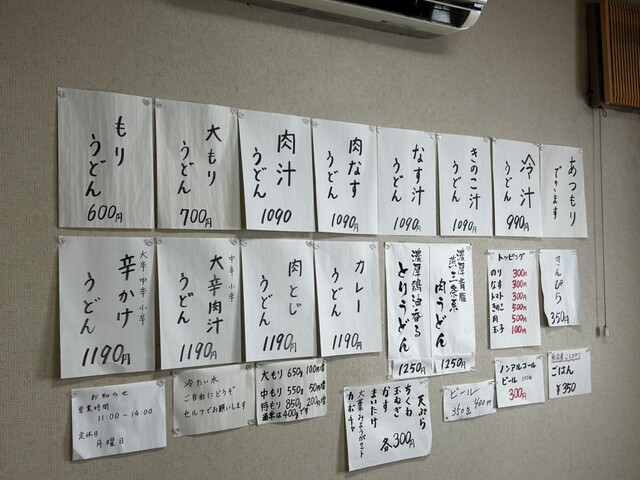 もり
うどん
600円
大もり
うどん
700円
肉汁
うどん
1090
肉なす
うどん
1090円
なす汁
うどん
1090円
きのこ汁
うどん
1090円
冷汁
うどん
990円
あつもり
できます
大辛 中辛 小辛
辛かけ
うどん
1190円
中辛 小辛
大辛肉汁
うどん
1190円
肉とじ
うどん
1190円
カレー
うどん
1190円
濃厚鶏油香る
とりうどん
1250円
濃厚背脂
燕三条系
肉うどん
1250円
トッピング
のり 300円
なす 300円
トマト 300円
きのこ 500円
肉 500円
玉子 100円
きんぴら
350円
お知らせ
営業時間
11:00-14:00
定休日
月曜日
冷たい水
ご自由にどうぞ
セルフでお願いします
大もり 650g 100円増
中もり 550g 50円増
特もり 850g 200円増
通常は400gです
天ぷら
ちくわ
玉ねぎ
かす
まいたけ
大葉みょうがセット
カボチャ
各300円
ビール
350缶 400円
ノンアルコール
ビール
300円
ごはん
¥350